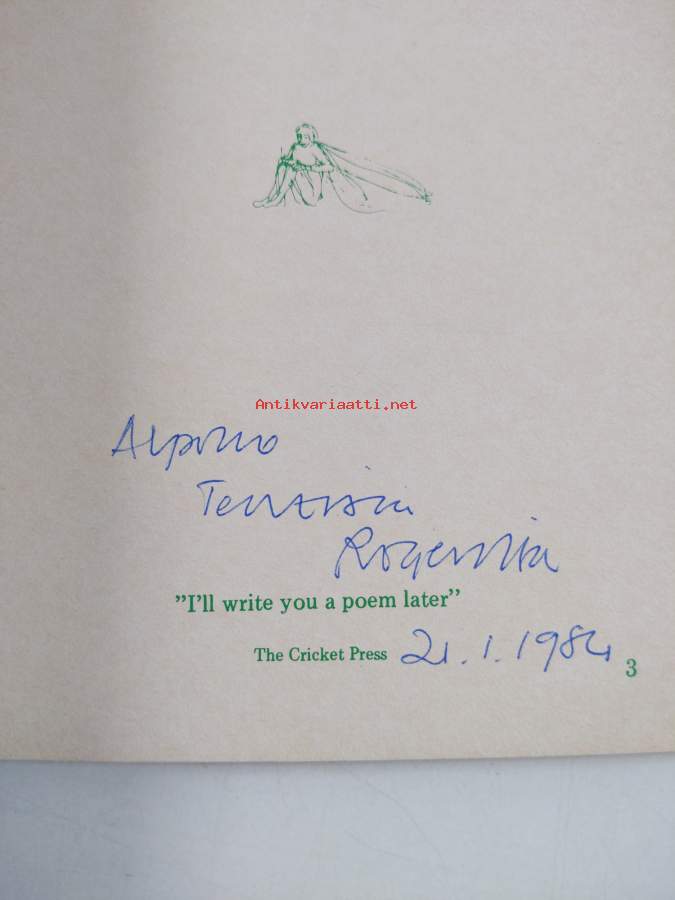 Antikvariaatti.net
Alpolle
Terttiäsi
"I'll write you a poem later"
The Cricket Press 21.1.1984
3